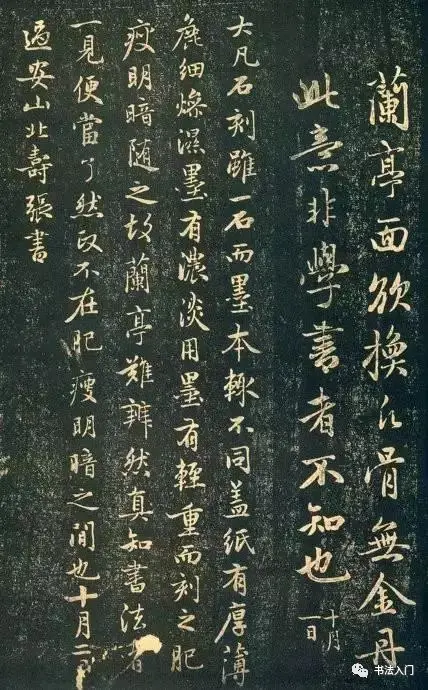 蘭亭面欲換凡骨無金丹
此意非學書者不知也
十月
一日
大凡石刻雖一石而墨本輒不同盖紙有厚薄
麁細燥濕墨有濃淡用墨有輕重而刻之肥
瘦明暗随之故蘭亭難辨然真知書法者
一見便當了然政不在肥瘦明暗之間也十月二日
過安山北壽張書
书法入门